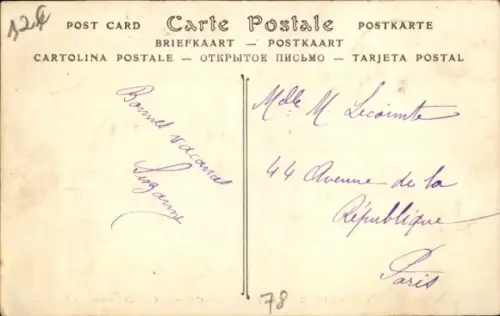 12€
POST CARD Carte Postale POSTKARTE
BRIEFKAART — POSTKAART
CARTOLINA POSTALE — ОТКРЫТОЕ ПИСЬМО — TARJETA POSTAL
Bonnes vacances
Suzanne
Mdle M. Lecointe
44 Avenue de la
République
Paris
78